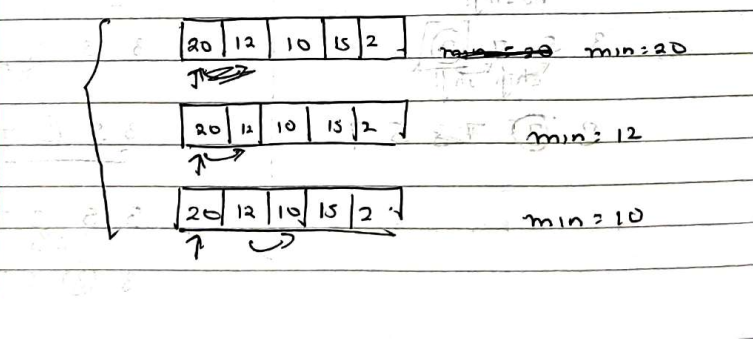 20 12 10 15 2 min = 20
20 12 10 15 2 min = 12
20 12 10 15 2 min = 10